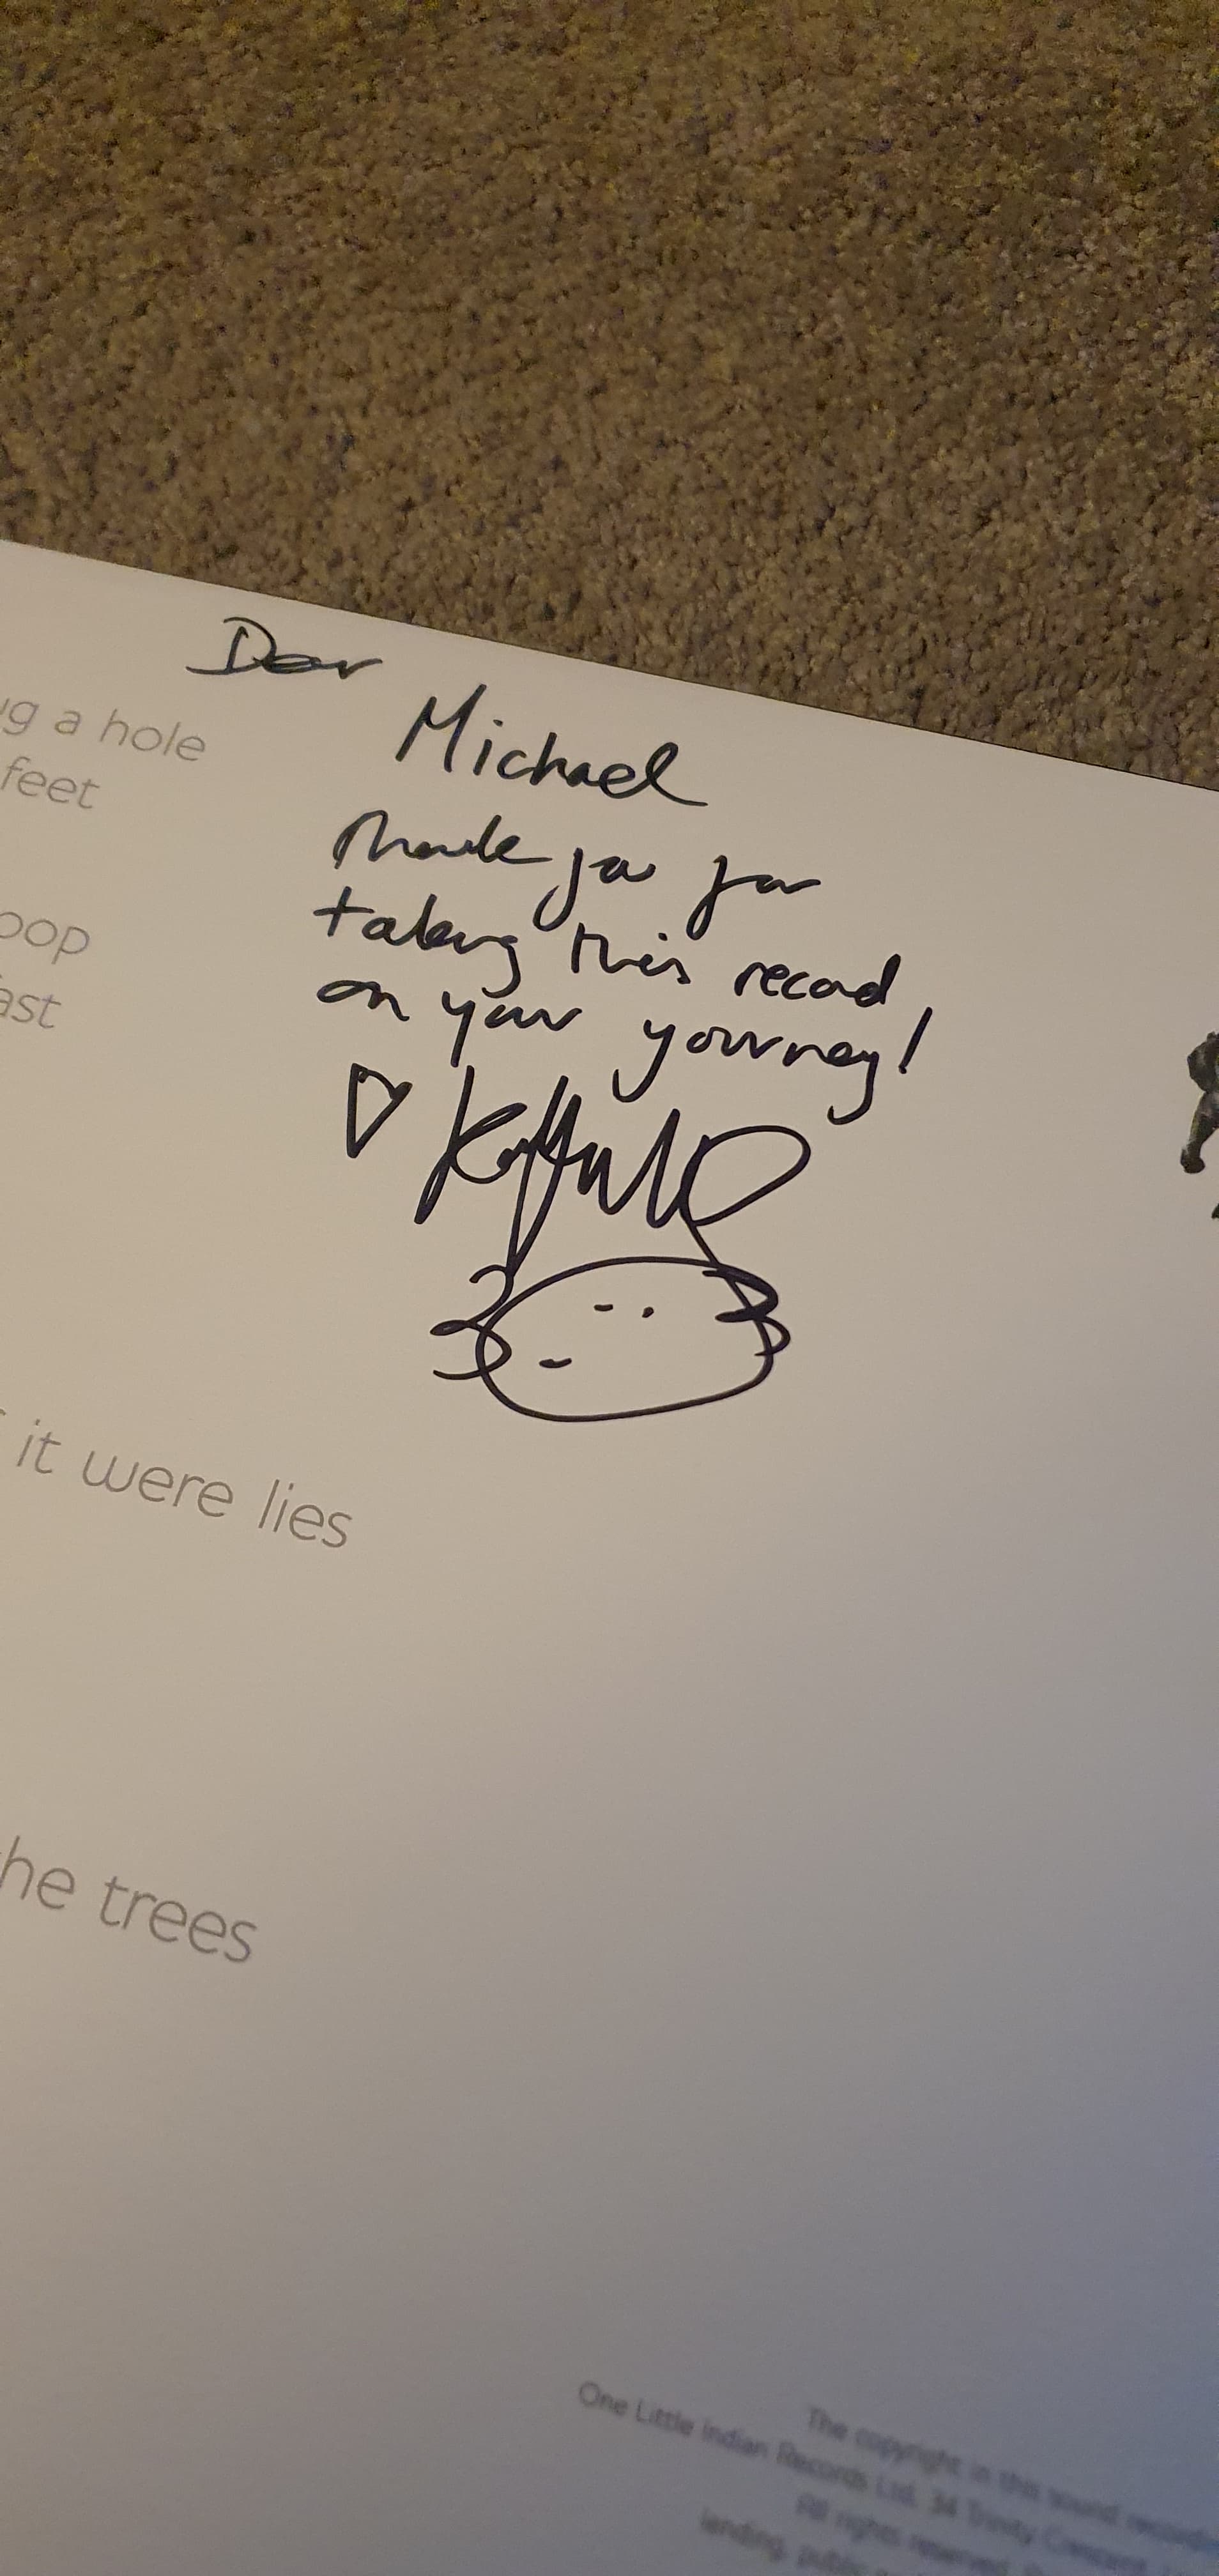 Dear
Michael
Thank you for
taking this record
on your yourney!
ug a hole
feet
oop
ast
it were lies
he trees
The copyright in this sound recording
One Little Indian Records Ltd. 34 Trinity Crescent
All rights reserved.
lending, public